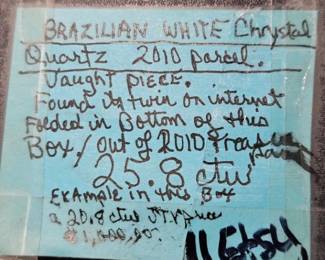 BRAZILIAN WHITE Chrystal
Quartz 2010 parcel.
Vaught PIECE.
Found its twin on internet
Folded in Bottom of this
Box! out of 2010
25.8 ctw
EXAMPLE in this Box
a 20.8 ctw JTV
$1,000.00.